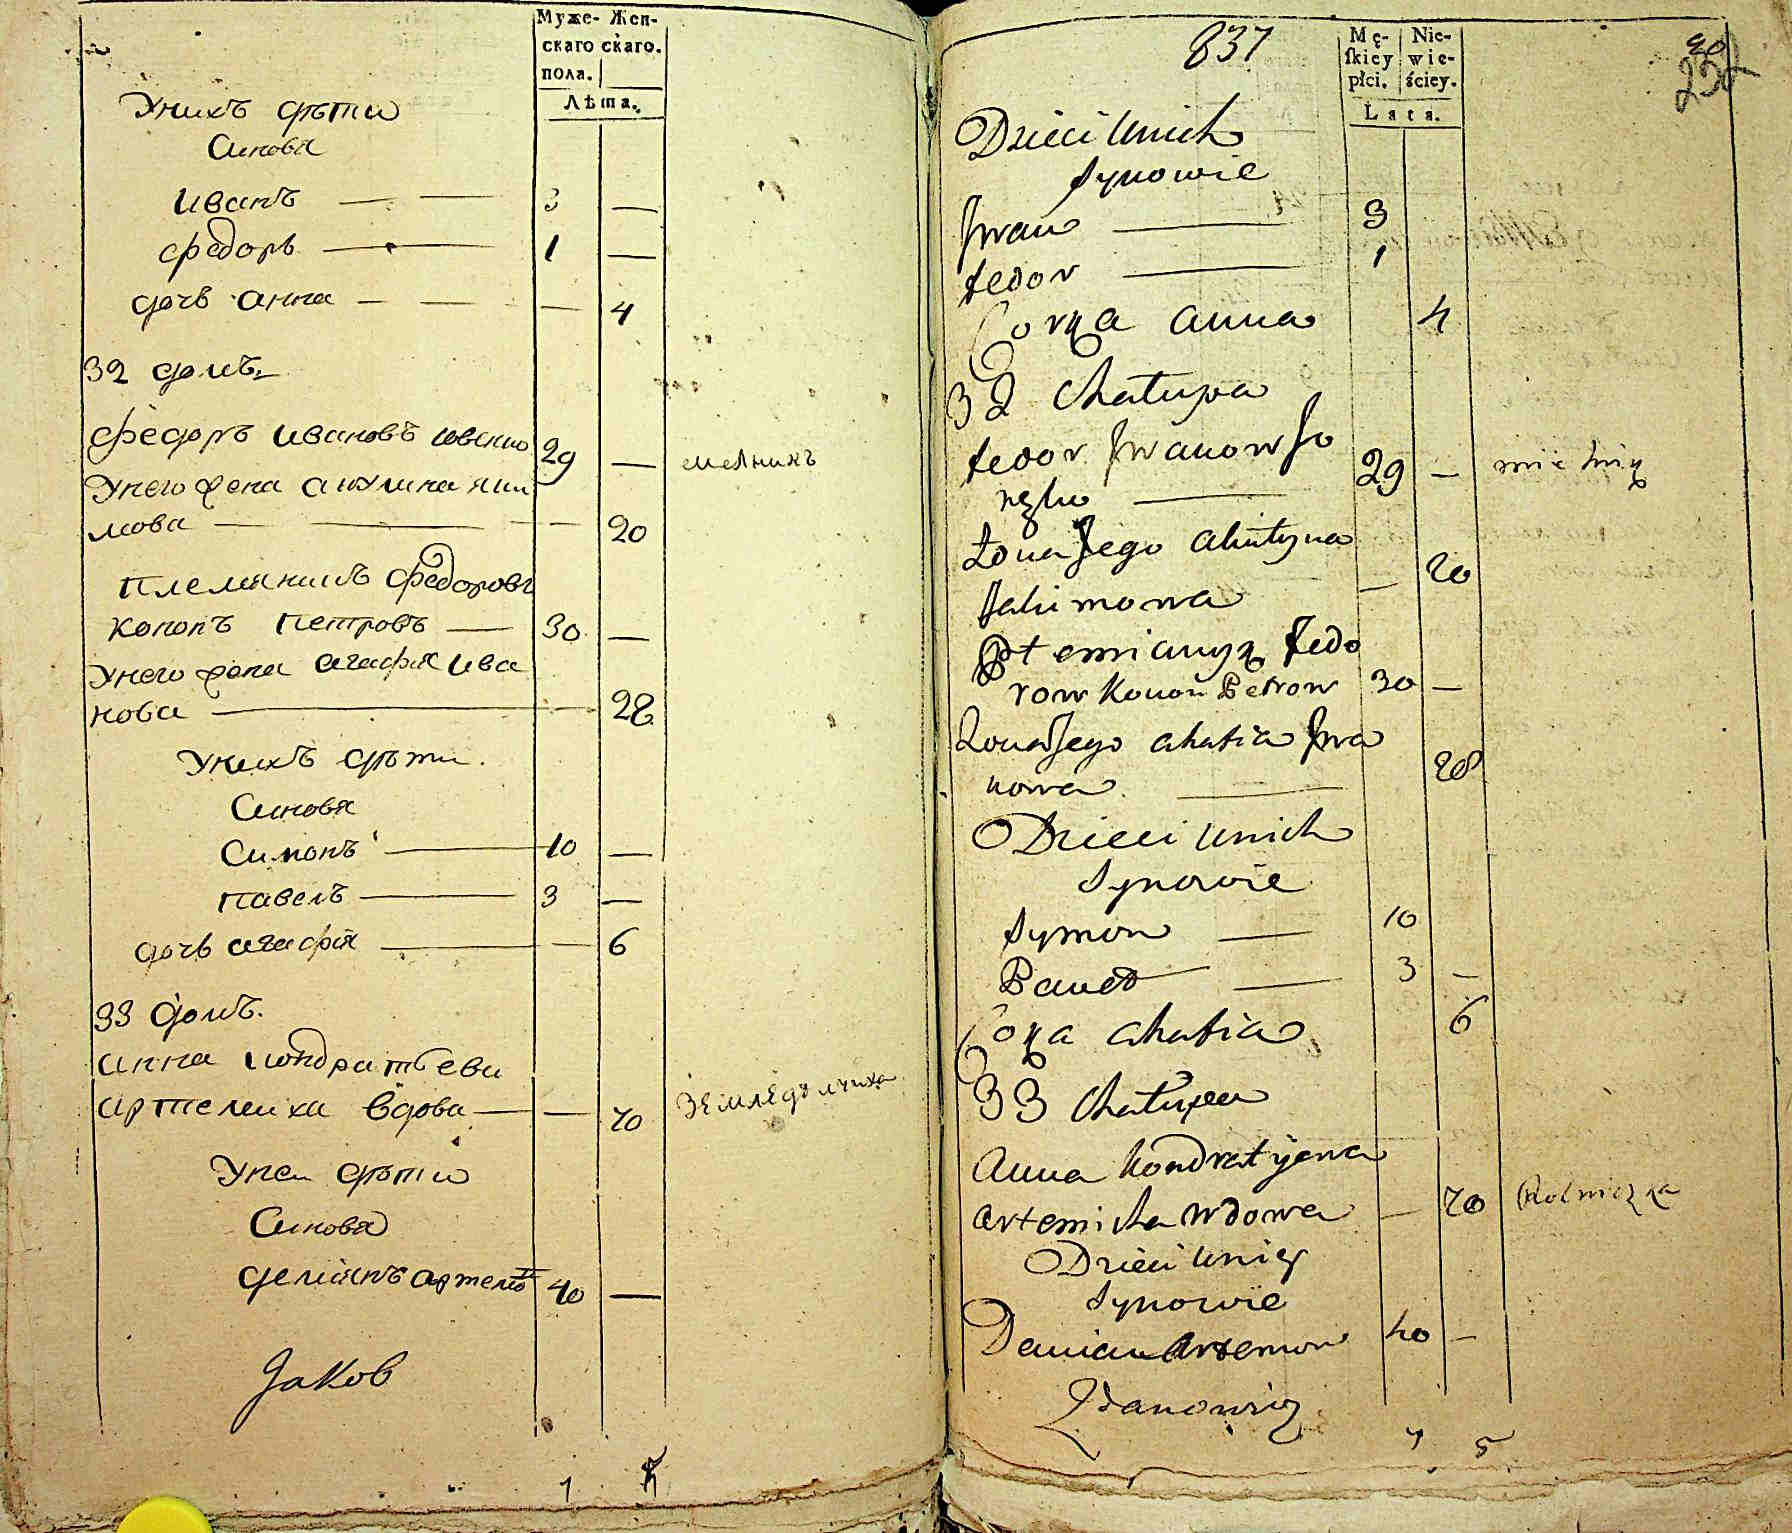 Муже- Жен-
скаго скаго.
пола.
Лѣта.
Унихъ дѣти
Синовя
Иванъ — — 3 —
Федоръ — 1 —
дочь Анна — — — 4
32 домъ
Федоръ Ивановъ 29 — мелникъ
Унего жена Акулина Яки
мова — — — 20
Племянникъ Федоровъ
Кононъ Петровъ — 30 —
Унего жена Агафія Ива
нова — — 28
Унихъ дѣти
Синовя
Симонъ — 10 —
Павелъ — 3 —
дочь Агафія — — 6
33 домъ.
Анна Кондратьева
Артемиха вдова — — 70 Земледѣлчиха
Унеи дѣти
Синовя
Демянъ Артемов 40 —
Jakob
7 5
837
Mę- Nie-
ſkiey wie-
płci. ściey.
Lata.
Dzieci Unich
Synowie
Jwan — 3
Fedor — 1
Corka Anna 4
32 Chałupa
Fedor Jwanow 29 —
Żona Jego Akulyna
Jakimowa — 20
Płemianyk Fedo
row Konon Petrow 30 —
Żona Jego Ahafia Jwa
nowa — 28
Dzieci Unich
Synowie
Symon — 10
Paweł — 3 —
Corka Ahafia 6
33 Chałupa
Anna Kondratijewa
Artemicha Wdowa — 70 Rolniczka
Dzieci Uniey
Synowie
Demian Artemow 40 —
Zdanowicz
7 5